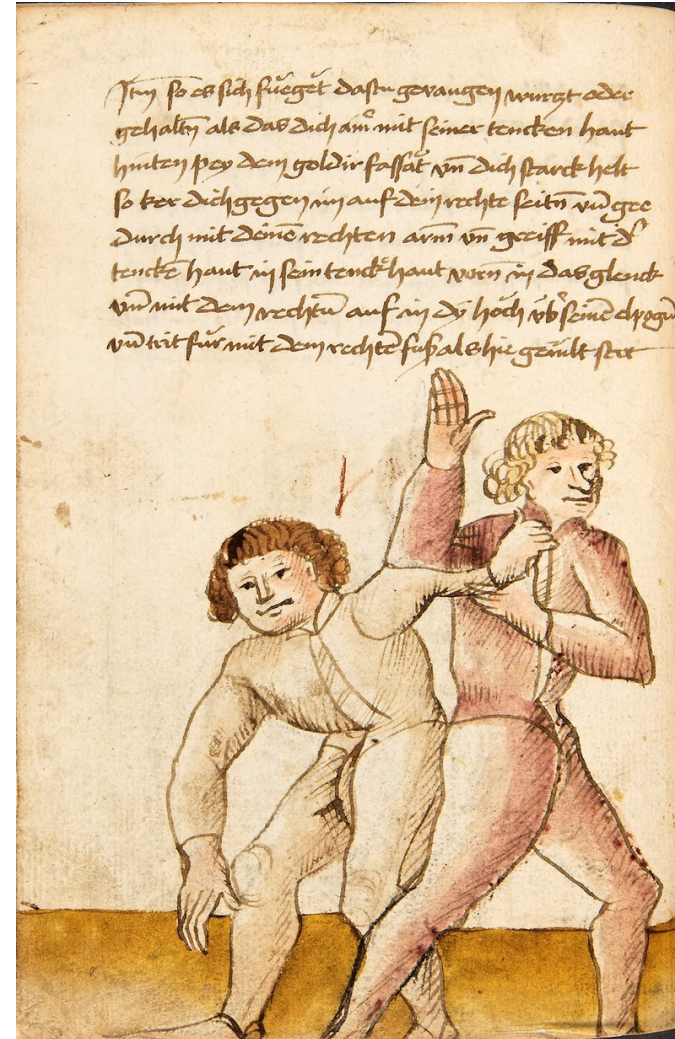 Itm so es sich füeget dastu gevangen wurzt oder
gehaltn als das dich ainer mit seiner tencken hant
hinten pey dem goldir fassat vnd dich starck helt
so ker dich gegen im auf dein rechte seitn vnd gee
durch mit deinē rechten arm vn̄ greiff mit d'
tenckē hant in sein tenck hant vorn in das glenck
vnd mit dem rechtn auf in dy höch vb' seinē elpogn
vnd trit für mit dem rechtē fuß als hie gemilt stet